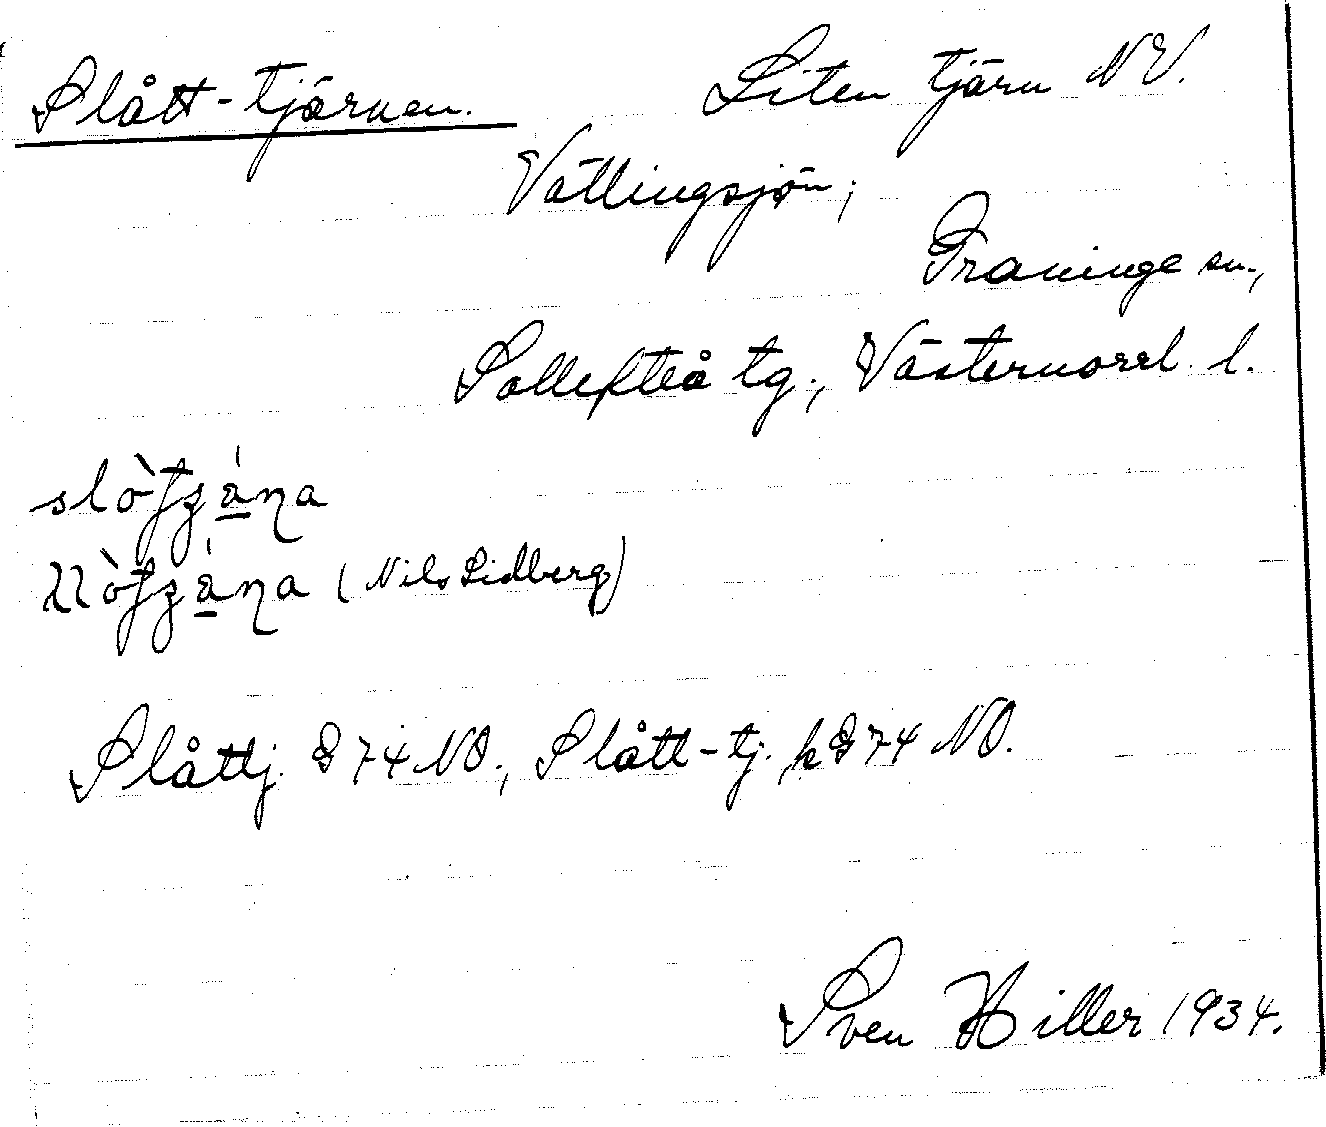 Slått-tjärnen. Liten tjärn NV.
Vällingsjön;
Graninge sn.,
Sollefteå tg., Västernorrl. l.
(Nils Lidberg)
Slåttj. G 74 NO., Slått-tj. k G 74 NO.
Sven Hiller 1934.